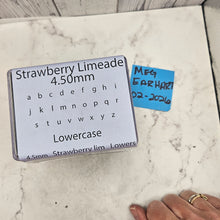 Strawberry Limeade
4.50mm
a b c d e f g h i
j k l m n o p q r
s t u v w x y z
Lowercase
4.5mm Strawberry lim Lowers
MEG
EARHART
02-2026